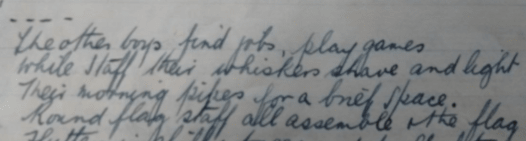 - - - -
The other boys find jobs, play games
While staff their whiskers shave and light
Their morning pipes for a brief space.
Round flag staff all assemble & the flag